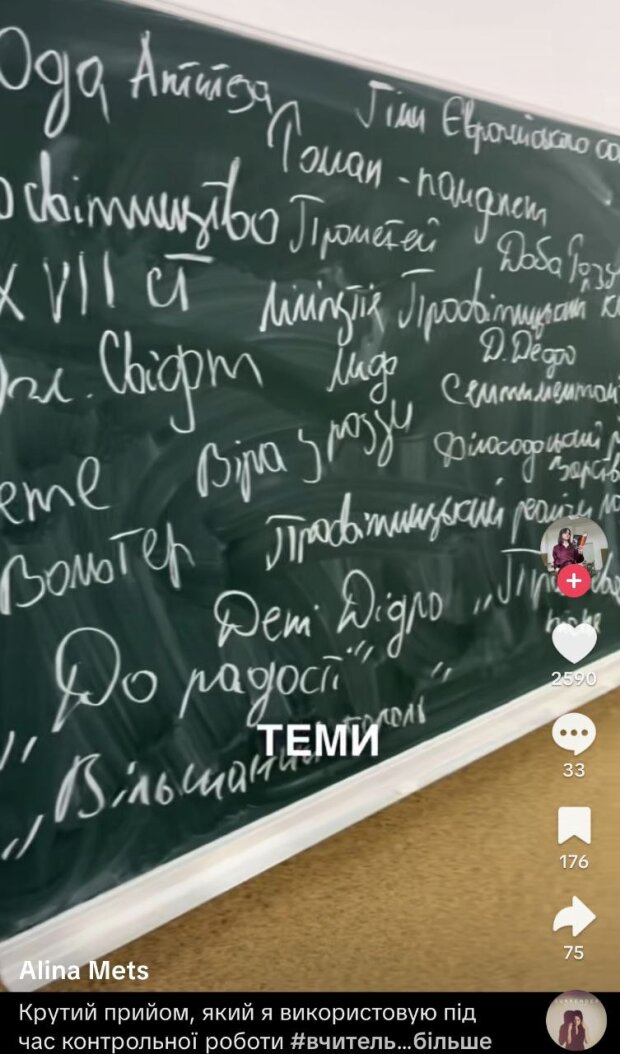 Ода Антитеза Гімн Європейського со
Роман - памфлет
освітництво Прометей Доба Розу
XVII ст Ліліпутія Просвітницький кл
Дж. Свіфт Миф Д. Дефо
Сентиментал
ете Віра з розуму Філософський
Вольтер Просвітницький реалізм
Дені Дідро
"До радості"
"Вільшаний король
ТЕМИ
2590
33
176
75
Alina Mets
Крутий прийом, який я використовую під
час контрольної роботи #вчитель...більше